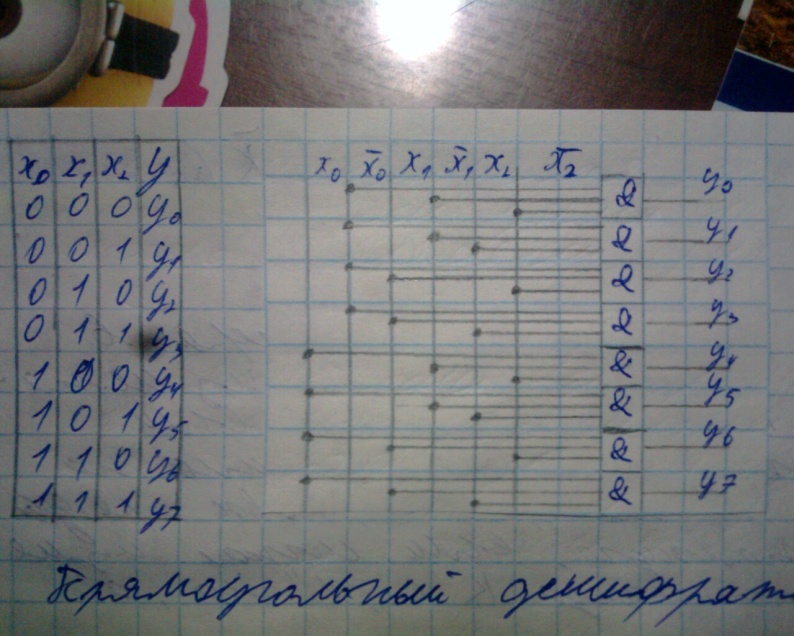 x₀ x₁ x₂ y
0 0 0 y₀
0 0 1 y₁
0 1 0 y₂
0 1 1 y₃
1 0 0 y₄
1 0 1 y₅
1 1 0 y₆
1 1 1 y₇
x₀ x̄₀ x₁ x̄₁ x₂ x̄₂
& y₀
& y₁
& y₂
& y₃
& y₄
& y₅
& y₆
& y₇
Прямоугольный дешифрат